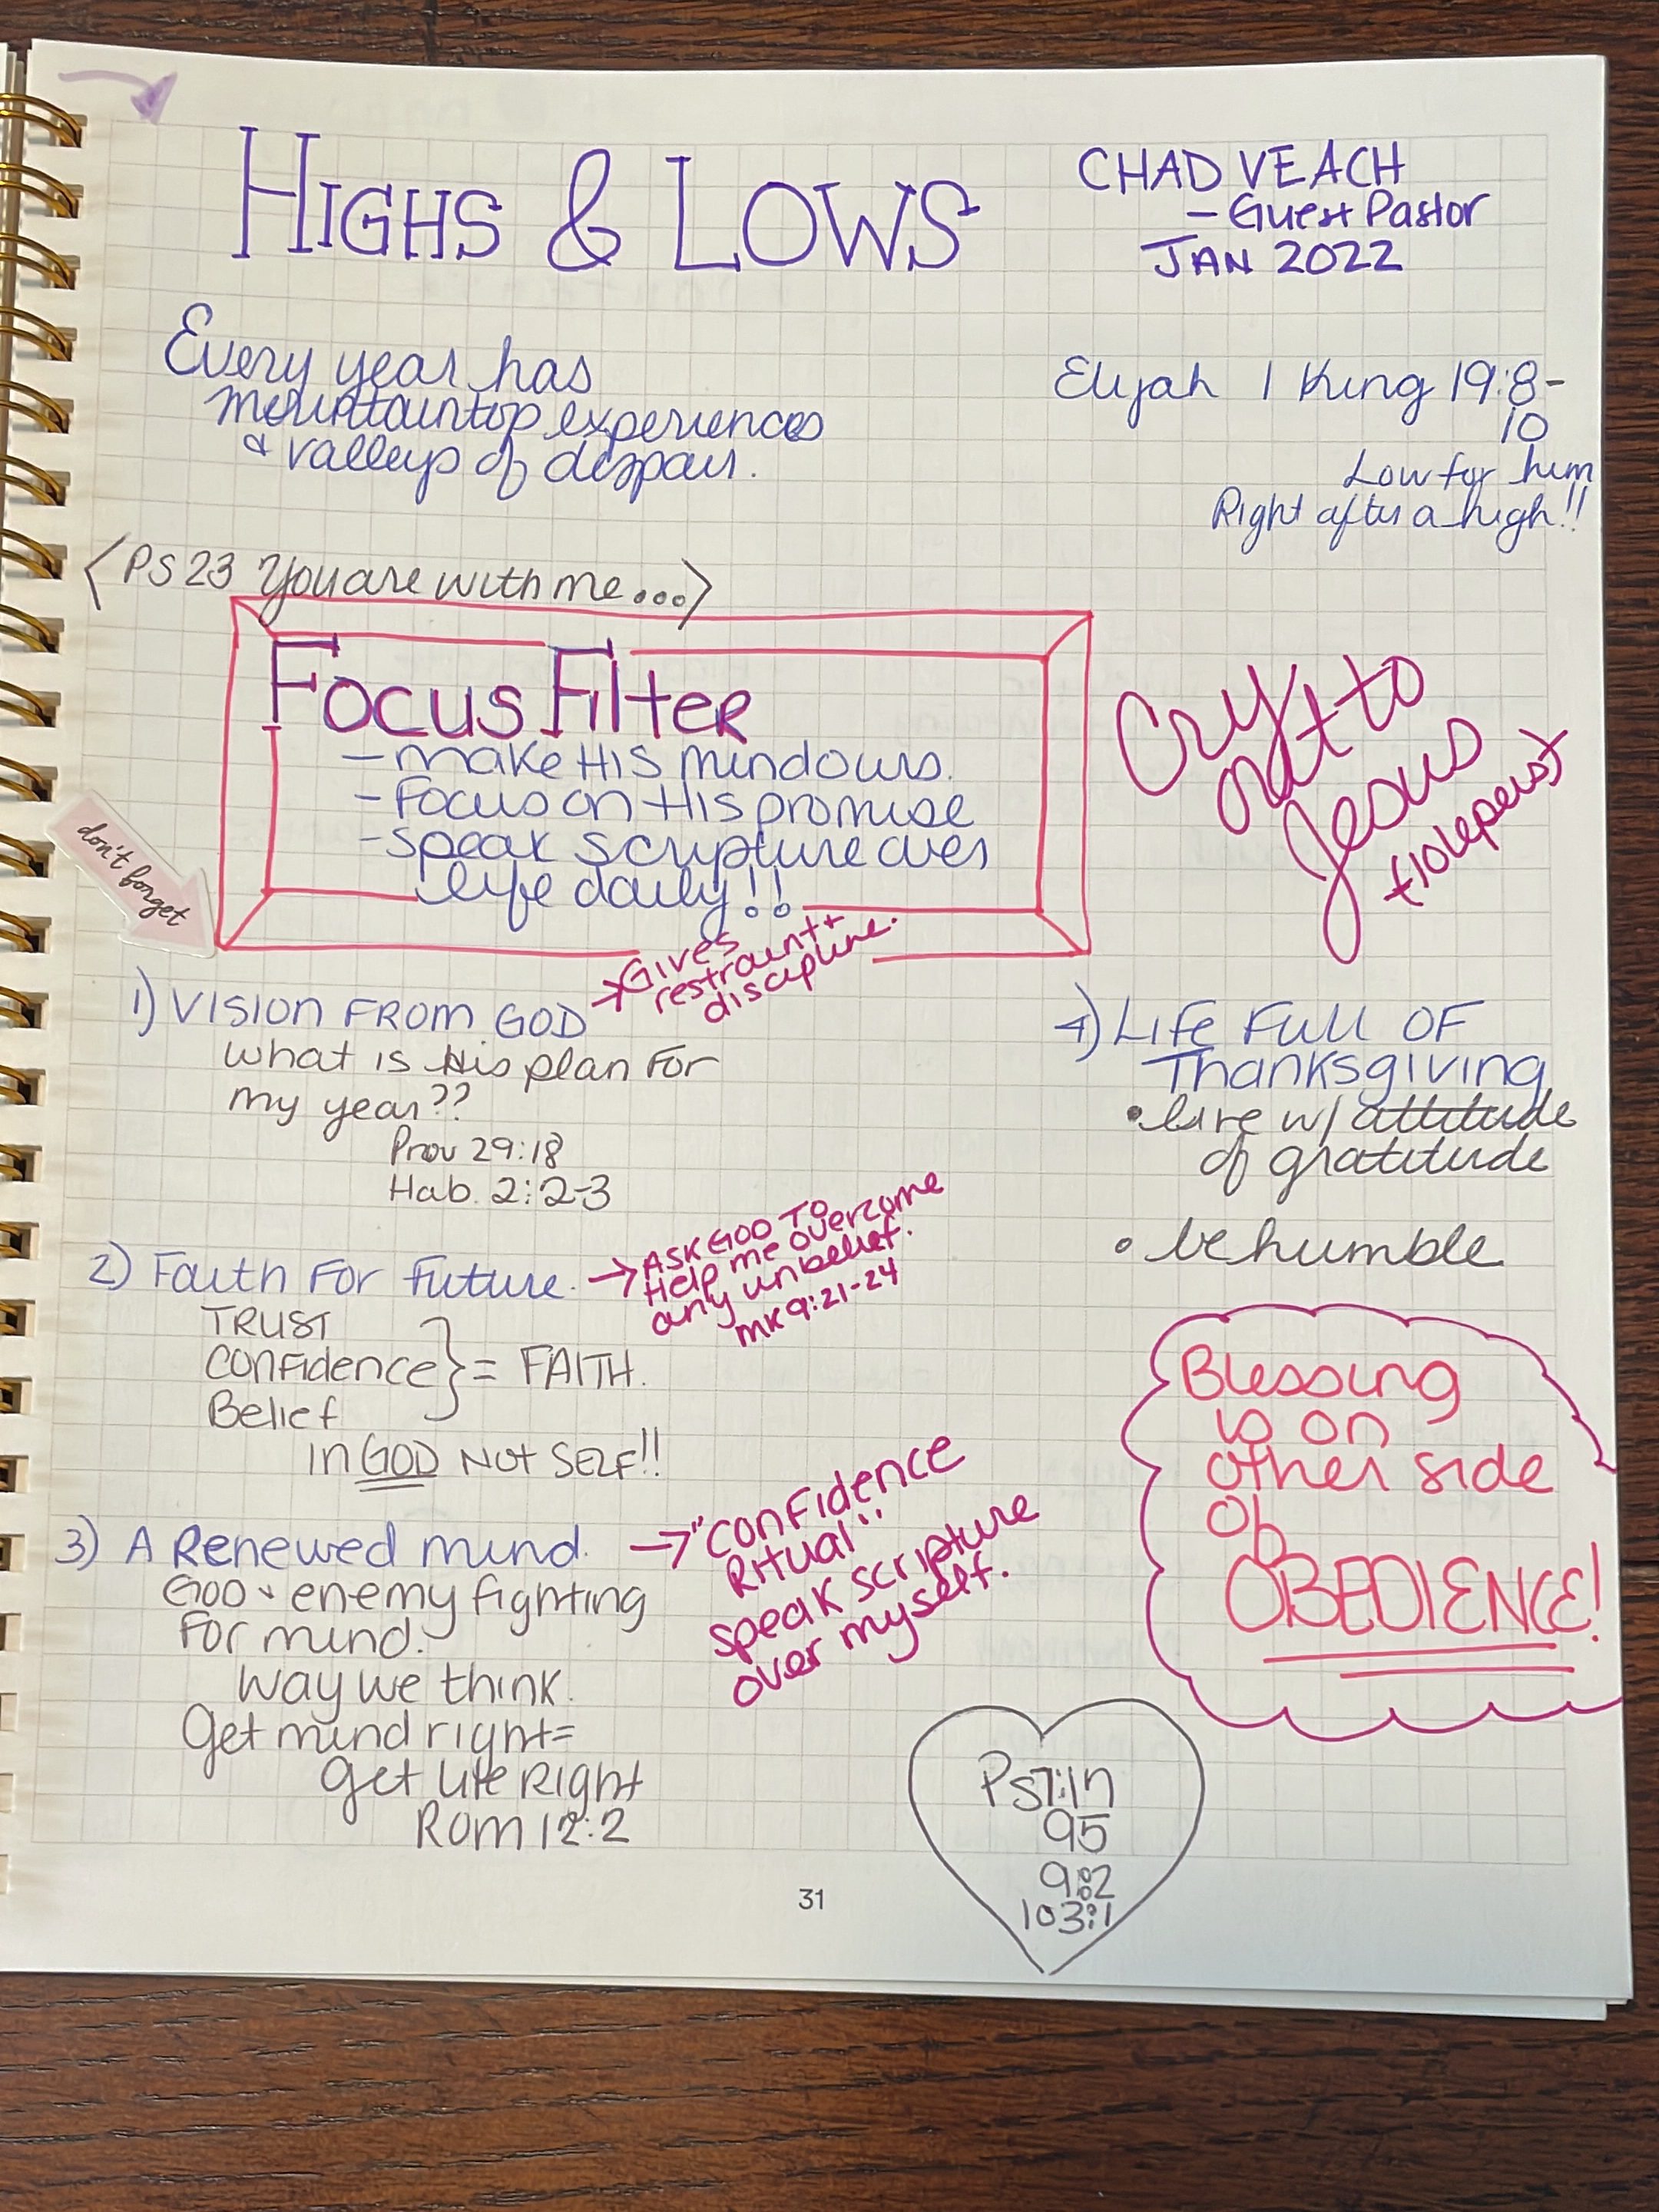 HIGHS & LOWS
CHAD VEACH
- Guest Pastor
JAN 2022
Every year has
mountaintop experiences
& valleys of despair.
Elijah 1 King 19:8-
10
Low for him
Right after a high!!
<PS 23 You are with me...>
FOCUS FILTER
- make His mind ours.
- Focus on His promise
- speak scripture over
life daily!!
don't forget
Cry
out to
Jesus
1) VISION FROM GOD
→ Gives
restraint +
discipline.
What is His plan for
my year??
Prov 29:18
Hab. 2:2-3
2) Faith For Future.
→ ASK GOD TO
Help me overcome
any unbelief.
MK 9:21-24
TRUST
Confidence } = FAITH.
Belief
in GOD NOT SELF!!
3) A Renewed mind.
→ "Confidence
Ritual"
speak scripture
over myself.
GOD & enemy fighting
for mind.
Way we think.
Get mind right =
get life Right
Rom 12:2
4) Life Full OF
Thanksgiving
• live w/ attitude
of gratitude
• be humble
Blessing
is on
other side
of
OBEDIENCE!
Ps 7:17
95
9:2
103:1
31